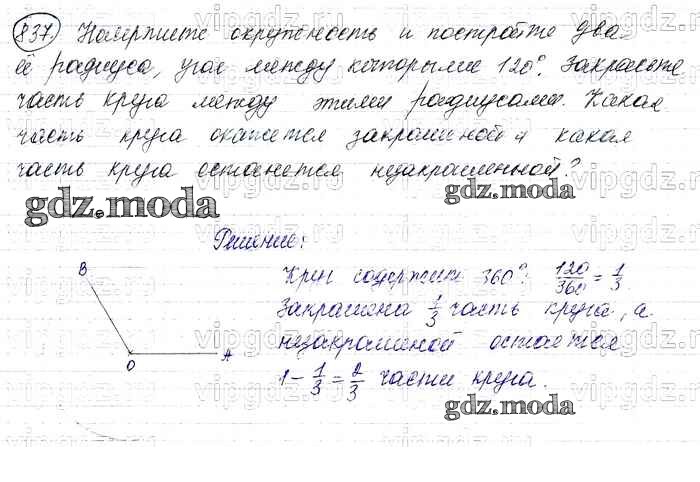 837. Начертите окружность и постройте два
её радиуса, угол между которыми 120°. Закрасьте
часть круга между этими радиусами. Какая
часть круга окажется закрашенной и какая
часть круга останется незакрашенной?
gdz.moda
gdz.moda
Решение:
B
O
A
Круг содержит 360°. 120/360 = 1/3.
Закрашена 1/3 часть круга, а
незакрашеной остаётся
1 - 1/3 = 2/3 части круга.
gdz.moda
vipgdz.ru